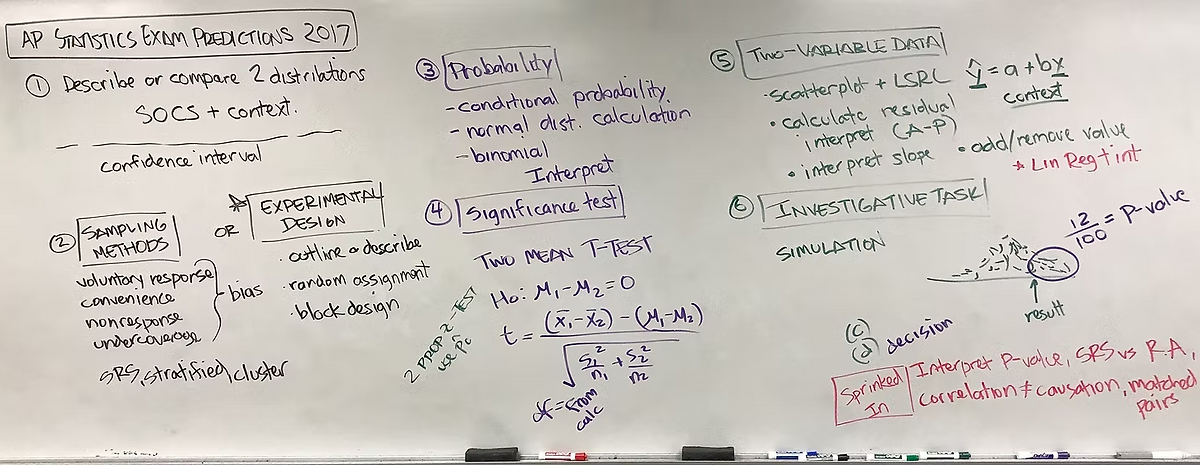 AP STATISTICS EXAM PREDICTIONS 2017
① Describe or compare 2 distribations
SOCS + context.
confidence interval
② SAMPLING METHODS
voluntary response
convenience
nonresponse
undercoverage
bias
SRS, stratified, cluster
OR
* EXPERIMENTAL DESIGN
· outline or describe
· random assignment
· block design
③ Probability
- conditional probability
- normal dist. calculation
- binomial
Interpret
④ Significance test
TWO MEAN T-TEST
Ho: μ₁-μ₂=0
t = (x̄₁-x̄₂) - (μ₁-μ₂) / √(s₁²/n₁ + s₂²/n₂)
df = from calc
2 PROP Z-TEST
use p̂c
⑤ TWO-VARIABLE DATA
· scatterplot + LSRL
• calculate residual
interpret (A-P)
• interpret slope
ŷ = a + bx
context
• add/remove value
* Lin Reg t int
⑥ INVESTIGATIVE TASK
SIMULATION
12/100 = P-value
result
(c)
(d) decision
Sprinked In
Interpret P-value, SRS vs R.A,
correlation ≠ causation, matched
pairs